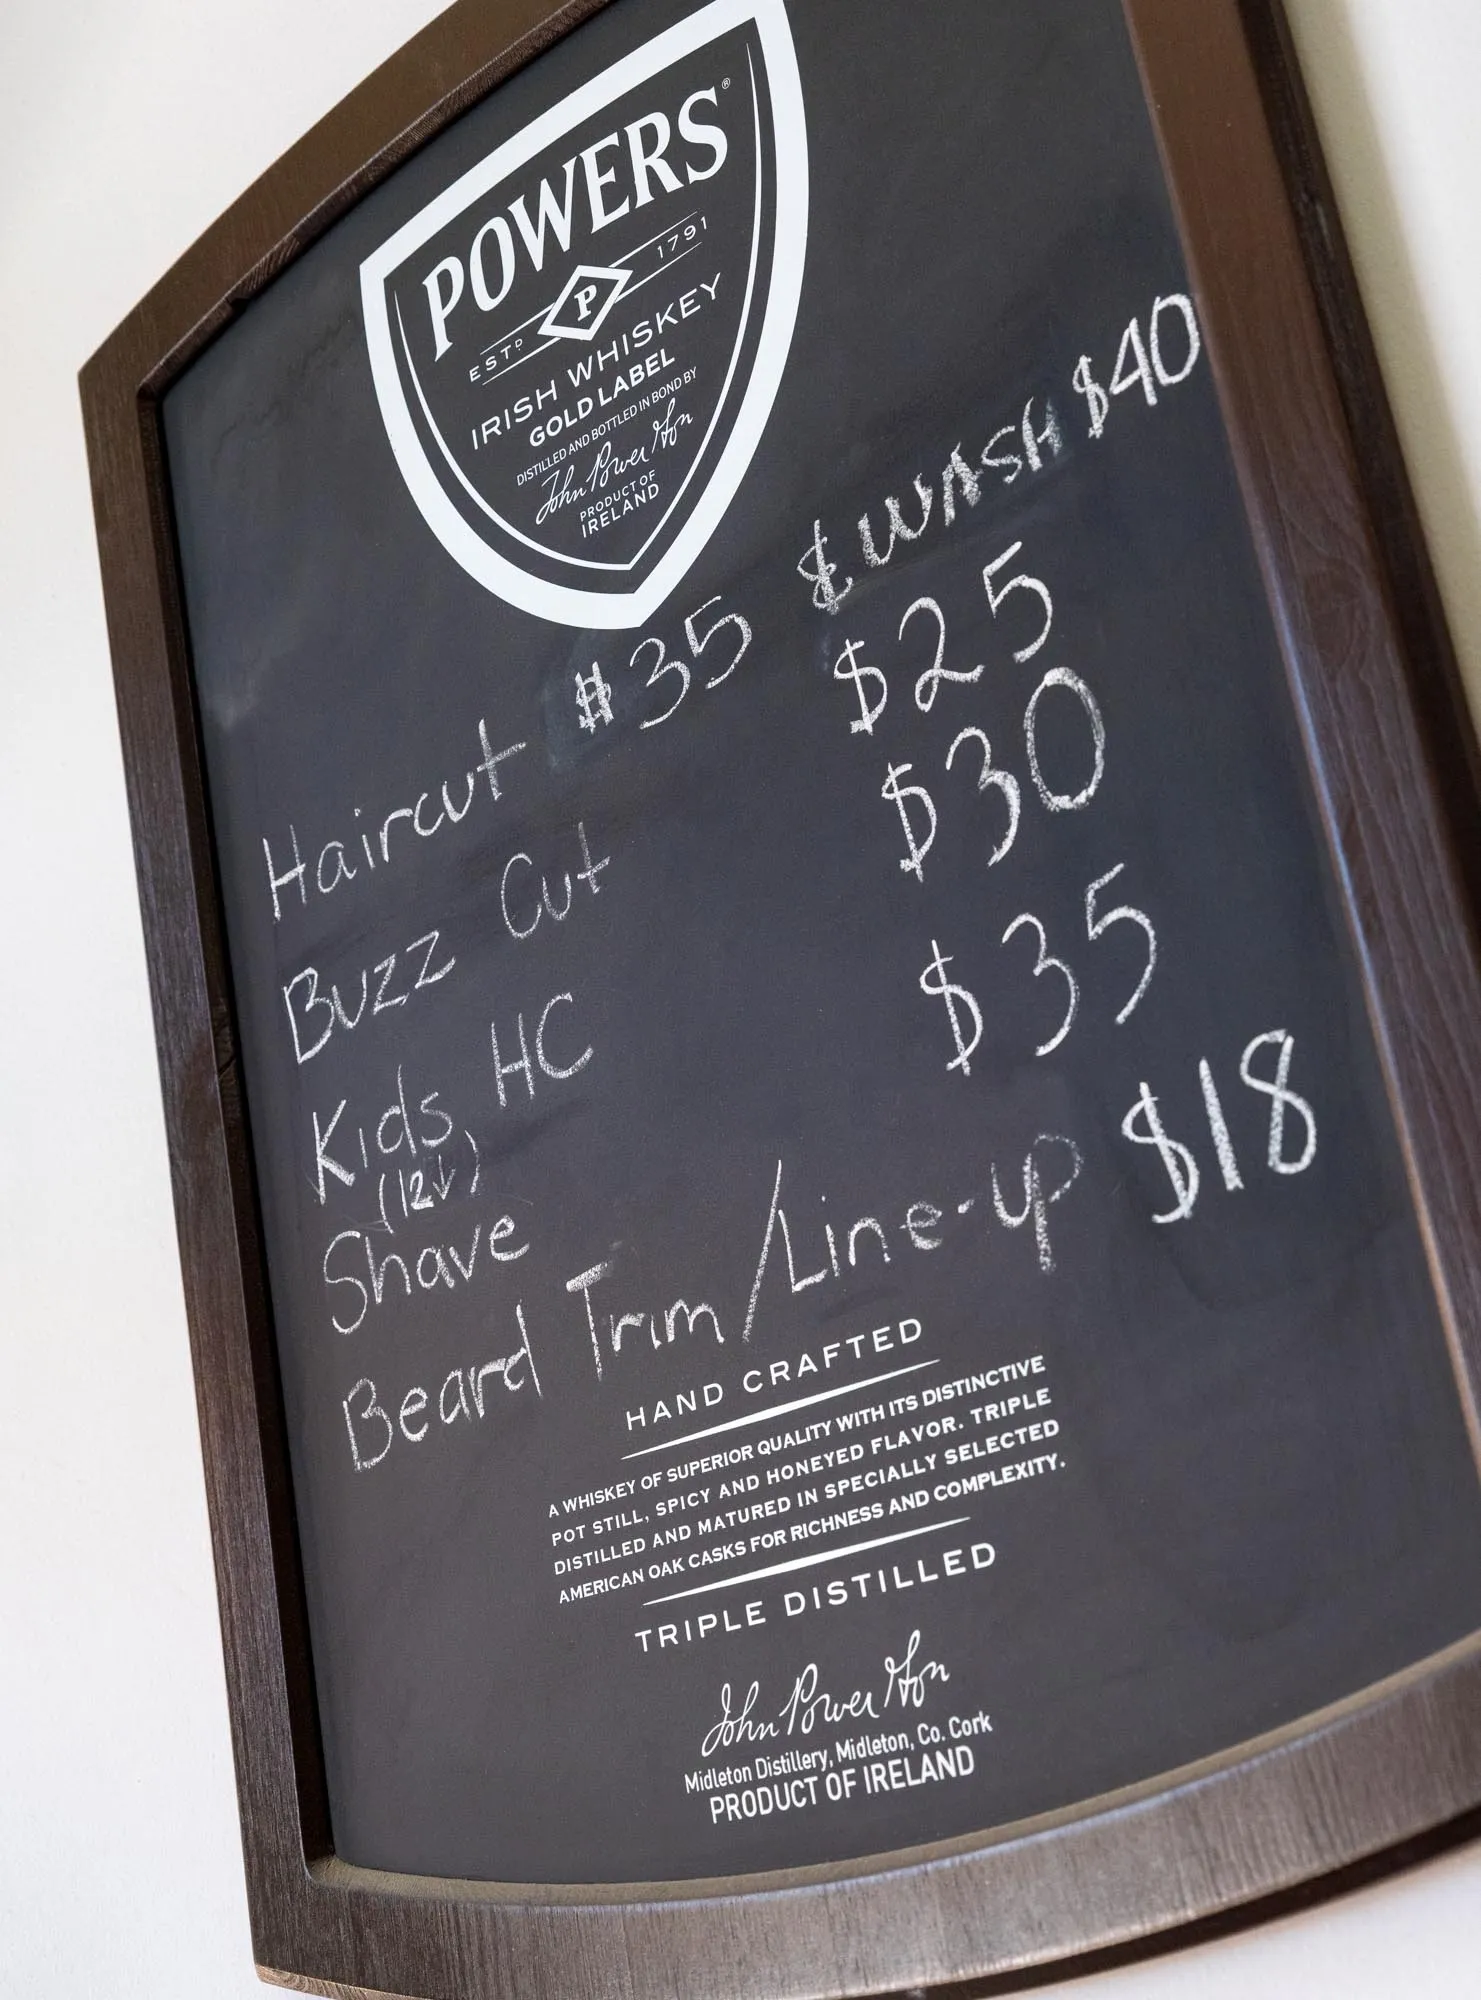 POWERS®
ESTD P 1791
IRISH WHISKEY
GOLD LABEL
DISTILLED AND BOTTLED IN BOND BY
John Power & Son
PRODUCT OF
IRELAND
Haircut $35 & WASH $40
Buzz Cut $25
Kids HC $30
(12↓)
Shave $35
Beard Trim/Line-up $18
HAND CRAFTED
A WHISKEY OF SUPERIOR QUALITY WITH ITS DISTINCTIVE
POT STILL, SPICY AND HONEYED FLAVOR. TRIPLE
DISTILLED AND MATURED IN SPECIALLY SELECTED
AMERICAN OAK CASKS FOR RICHNESS AND COMPLEXITY.
TRIPLE DISTILLED
John Power & Son
Midleton Distillery, Midleton, Co. Cork
PRODUCT OF IRELAND